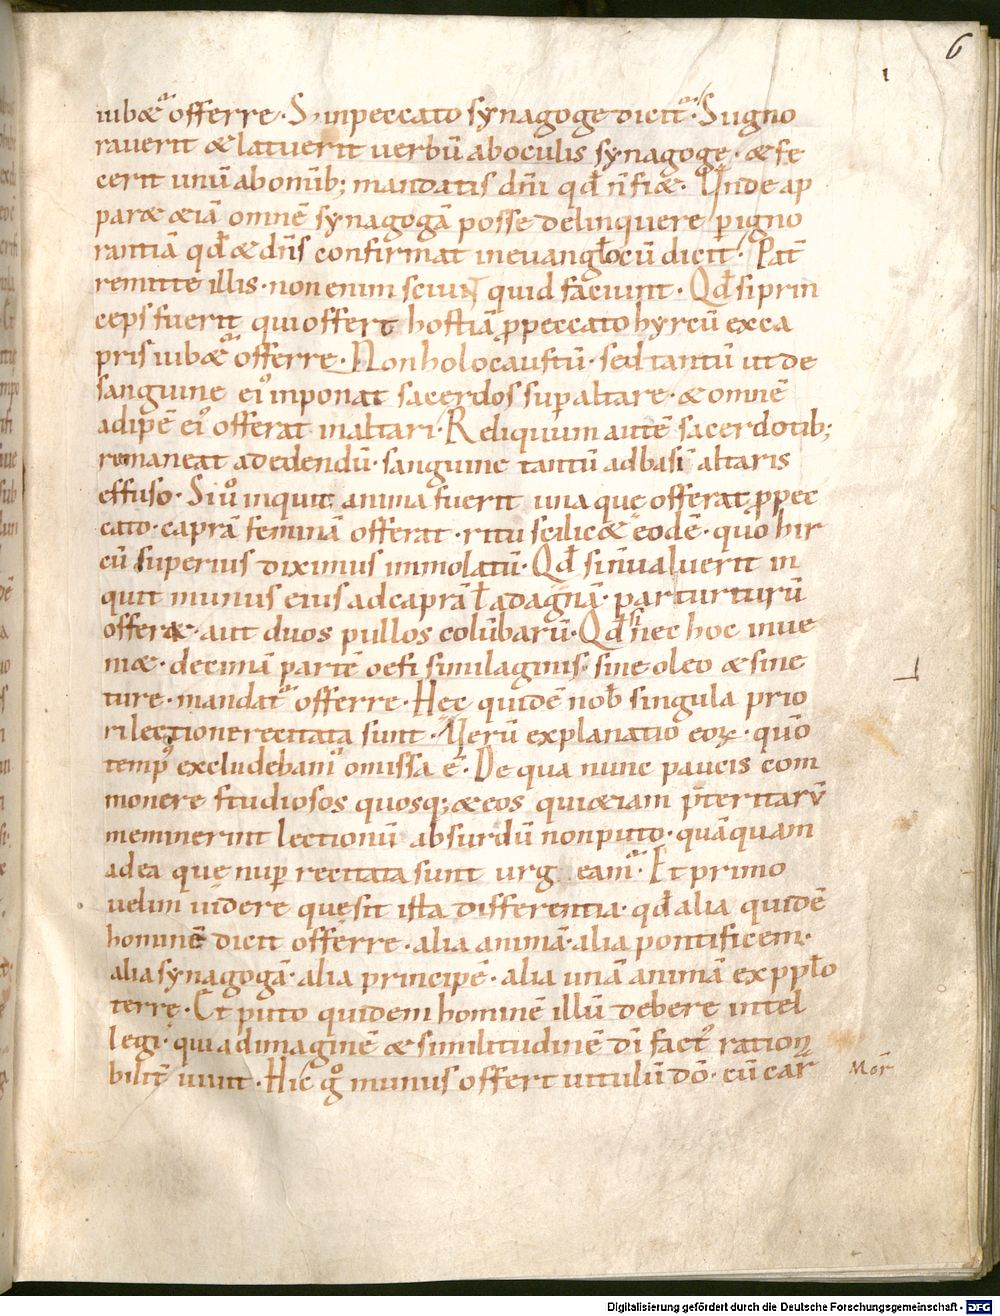 6
iubæt᷑ offerre. S; inpeccato synagoge dicit᷑. Siigno
rauerit & latuerit uerbū aboculis synagogę. & fe
cerit unū abomib; mandatis dn̄i qđ n̄ fiæ. Unde ap
paræ æiā omnē synagogā posse delinquere p ignо
rantiā qđ & dn̄s confirmat ineuangł̄o cū dicit. Pat̄
remitte illis. non enim sciunt quid faciunt. Qđ si prin
ceps fuerit qui offert hostiā p peccato hyrcū exca
pris iubæt᷑ offerre. Non holocaustū. sed tantū ut de
sanguine ei᷒ inponat sacerdos sup altare. & omnē
adipē ei᷒ offerat inaltari. Reliquum autē sacerdotib;
remaneat adedendū. sanguine tantū adbasī altaris
effuso. Siu͛ inquit anima fuerit una quę offerat p pec
cato. caprā feminā offerat. ritu scilicæ eodē. quo hir
cū superius diximus immolatū. Qđ si n̄ ualuerit in
quit munus eius adcaprā ł adagnā. par turturū
offeræ. aut duos pullos colūbarū. Qđ si nec hoc inue
niæ. decimā partē oefi similaginis. sine oleo & sine
ture. mandat᷑ offerre. Hęc quidē nob̄ singula prio
ri lectione recitata sunt. Uerū explanatio eoꝝ. quō
temp᷒ excludebam᷒ omissa ē. De qua nunc paucis com
monere studiosos quosq; & eos qui æiam p̄teritarū
meminerint lectionū absurdū non puto. quāquam
adea quę nup recitata sunt urg eam᷑. Et primo
uelim uidere quę sit ista differentia. qđ alia quidē
hominē dicit offerre. alia animā. alia pontificem.
alia synagogā. alia principē. alia unā animā ex ppł̄o
terrę. Et puto quidem hominē illū debere intel
legi. qui adimaginē & similitudinē dī fact᷒ ration
bilit̄ uiuit. Hic g° munus offert uitulū dō. cū car̄
Mor̄
Digitalisierung gefördert durch die Deutsche Forschungsgemeinschaft - DFG